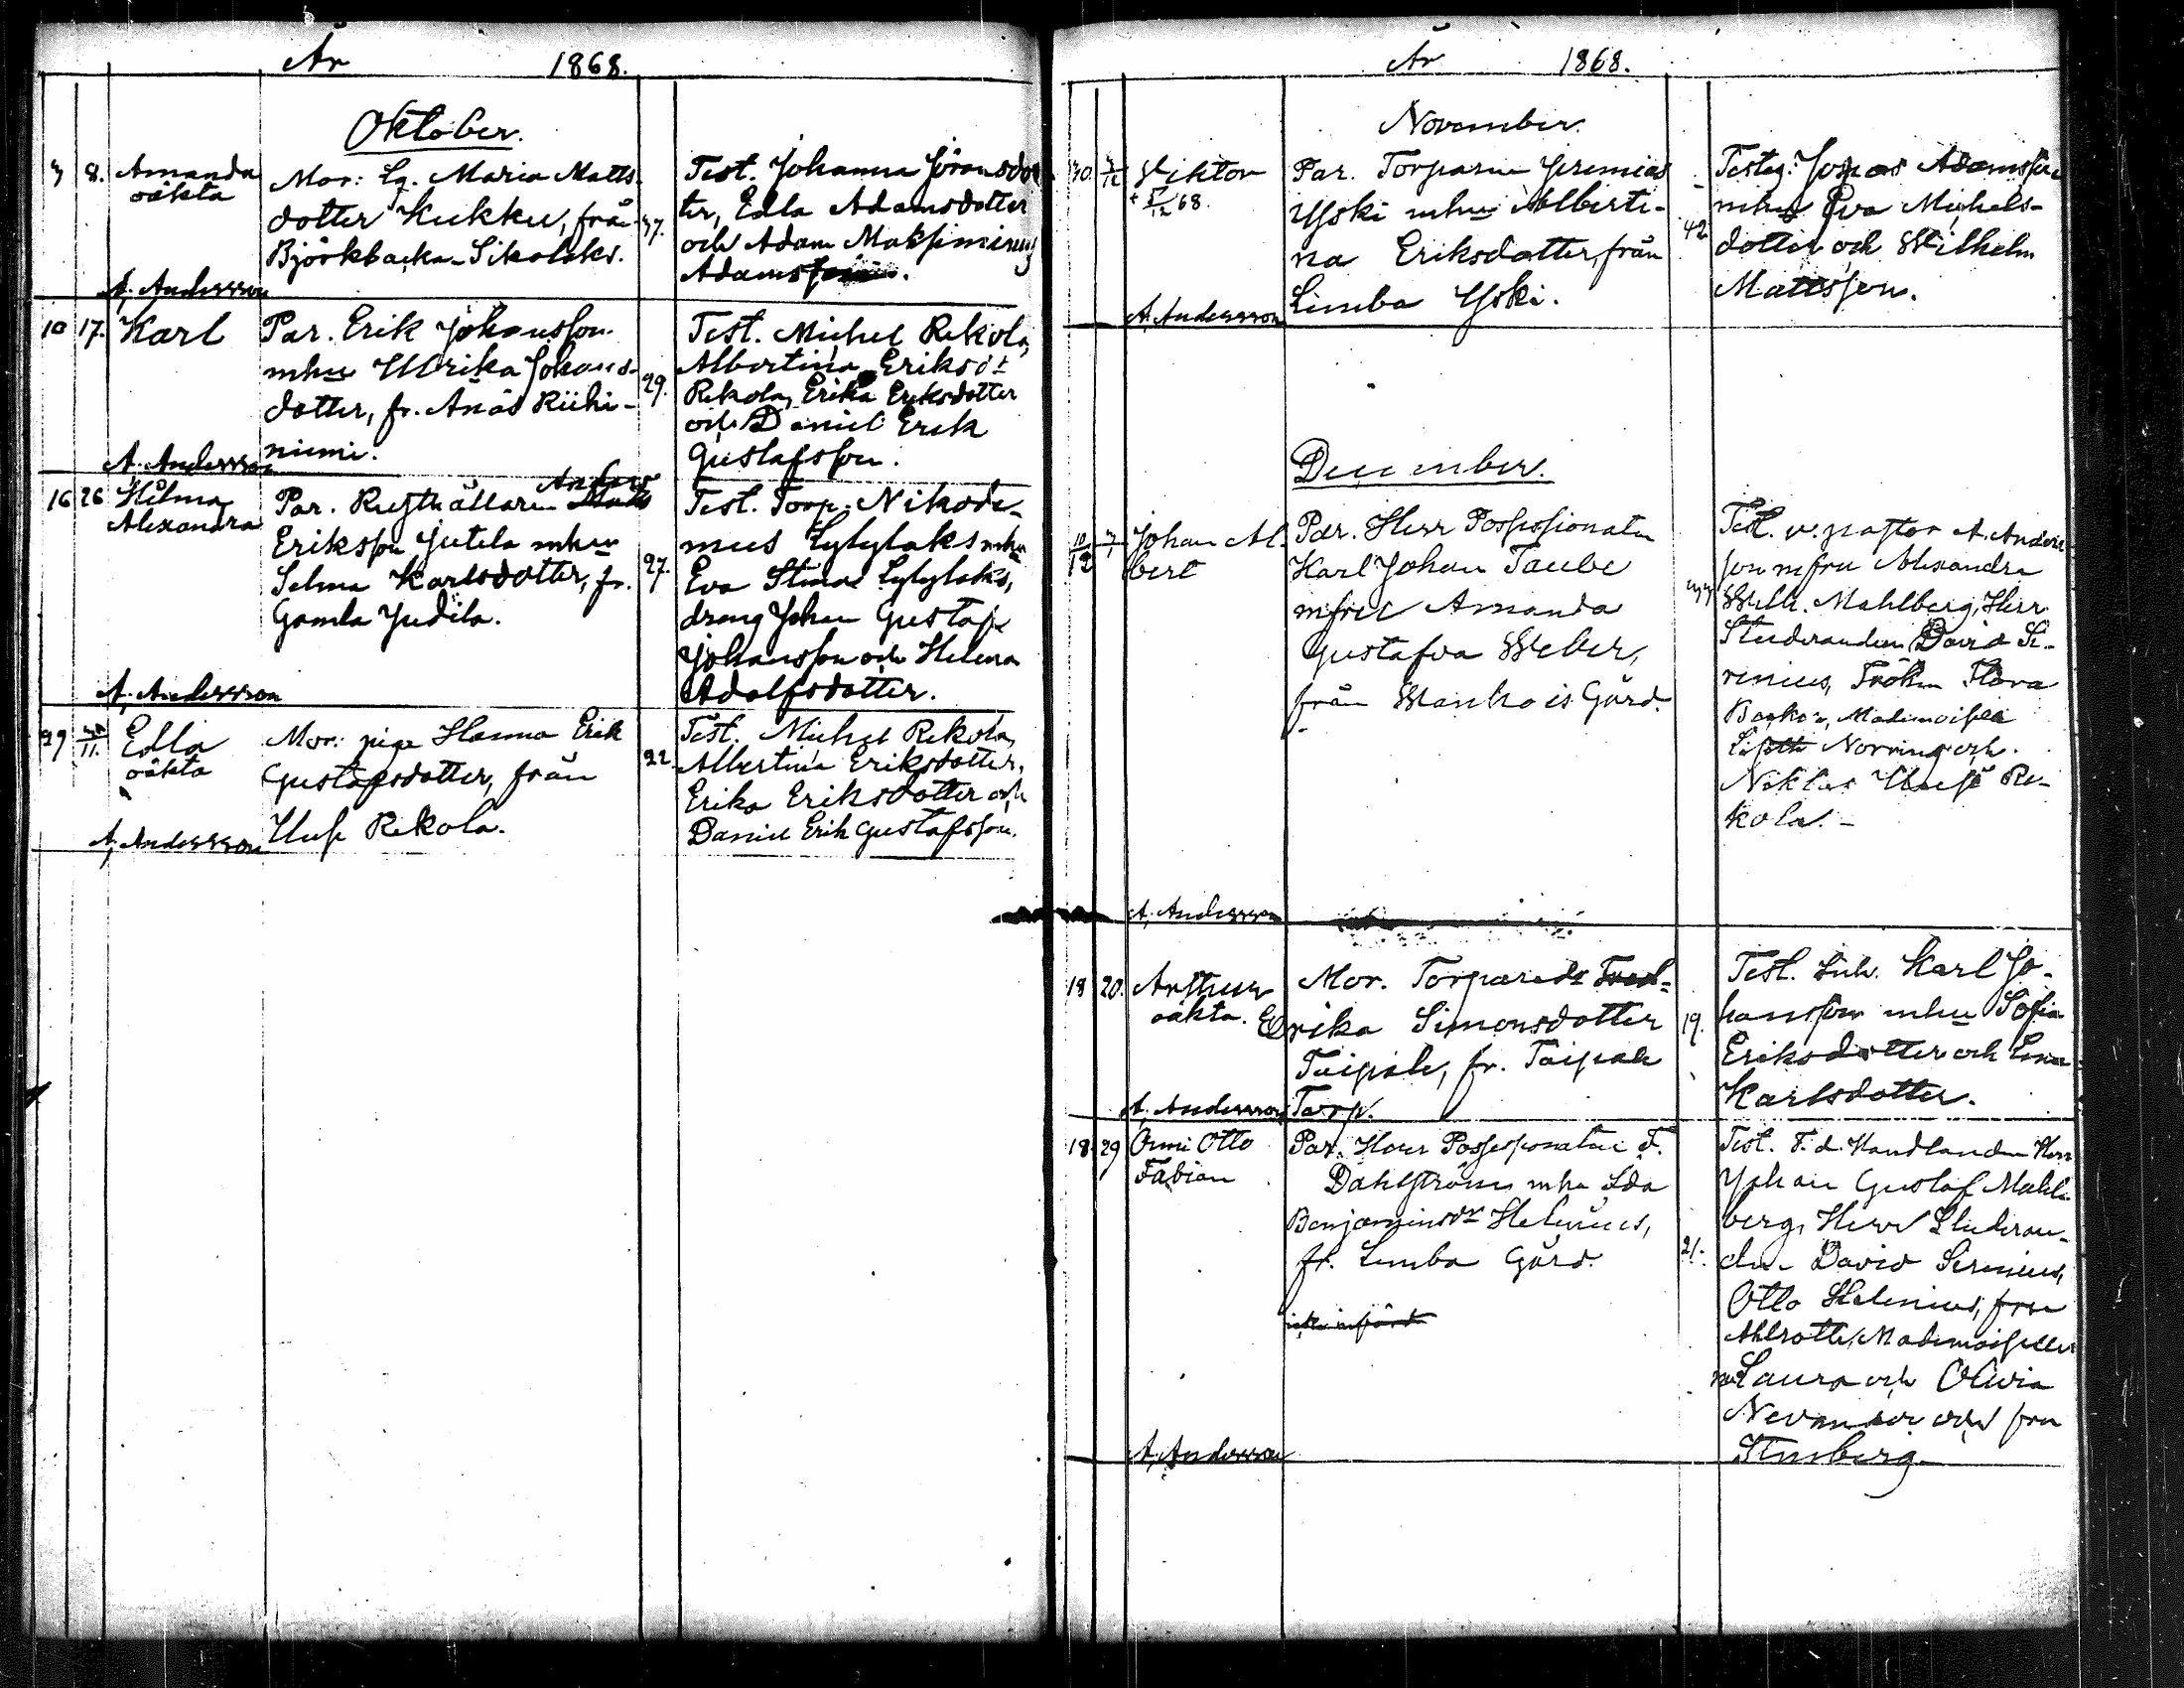 År 1868.
Oktober.
3 8. Amanda
oäkta
Mor: Maria Matts-
dotter Kukku, från
Björkbacka Sikolaks.
37.
Test. Johanna Göransdot
ter, Edla Adamsdotter
och Adam Maksiminus
Adamsson.
A. Andersson
10 17. Karl
Par. Erik Johansson
mhu Ulrika Johans-
dotter, fr. Änäs Riihi-
niemi.
29.
Test. Michel Rekola,
Albertina Eriksdt
Rekola, Erika Eriksdotter
och Daniel Erik
Gustafsson.
A. Andersson
16 26 Hilma
Alexandra
Anders
Par. Rusthållaren
Eriksson Jutila mhu
Selma Karlsdotter, fr.
Gamla Judila.
27.
Test. Torp. Nikode-
mus Lylylaks mhu
Eva Stina Lylylaks,
dräng Johan Gustaf
Johansson och Helena
Adolfsdotter.
A. Andersson
29 11. Edla
oäkta
Mor: piga Hanna Erik
Gustafsdotter, från
Uusi Rekola.
22.
Test. Michel Rekola,
Albertina Eriksdotter,
Erika Eriksdotter och
Daniel Erik Gustafsson.
A. Andersson
År 1868.
November.
30 3/12 Viktor
+ 5/12 68.
Par. Torparen Jeremias
Yski mhu Alberti-
na Eriksdotter, från
Limba Yski.
42
Testes: Adamsson
mhu Eva Michels-
dotter och Wilhelm
Mattsson.
A. Andersson
December.
Johan Al-
bert
Par. Herr Possessionaten
Karl Johan Taube
mfru Amanda
Gustafva Weber,
från Wanhais Gård.
Test. v. pastor A. Anders
son mfru Alexandra
Wilh. Mahlberg, Herr
Studeranden David Se-
renius, Fröken Flora
Mademoisell
Norring och
Niklas Uusi Re-
kola.
A. Andersson
18 20. Arthur
oäkta.
Mor. Torparedr
Erika Simonsdotter
Taipale, fr. Taipale
Torp.
19.
Test. Karl Jo-
hansson mhu Sofia
Eriksdotter och Lena
Karlsdotter.
A. Andersson
18 29 Onni Otto
Fabian
Par. Herr Possessionaten F.
Dahlström mhu Ida
Benjaminsdr Helenius,
fr. Limba Gård.
21.
Test. F. d. Handlanden Herr
Johan Gustaf Mahl-
berg, Herr Studeran-
den David Serenius,
Otto Helenius, fru
Ahlroth, Mademoiseller
na Laura och Olivia
Nevander och fru
Stenberg.
A. Andersson